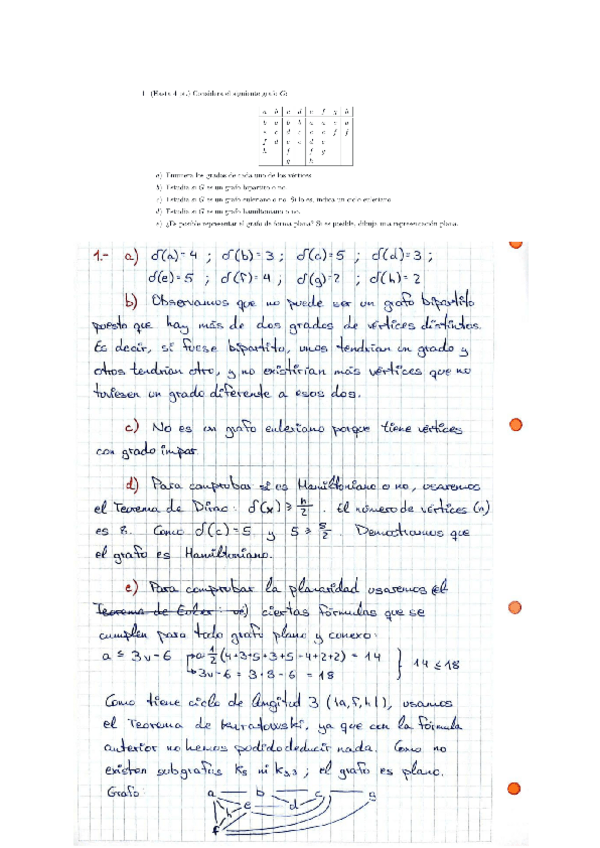 1. (Hasta 4 pts.) Considera el siguiente grafo G:
a b c d e f g h
a) Enumera los grados de cada uno de los vértices
b) Estudia si G es un grafo bipartito o no
c) Estudia si G es un grafo euleriano o no. Si lo es, indica un ciclo euleriano
d) Estudia si G es un grafo hamiltoniano o no.
e) ¿Es posible representar el grafo de forma plana? Si es posible, dibuja una representación plana.
1.- a) δ(a)=4 ; δ(b)=3 ; δ(c)=5 ; δ(d)=3 ;
δ(e)=5 ; δ(f)=4 ; δ(g)=2 ; δ(h)=2
b) Observamos que no puede ser un grafo bipartito
puesto que hay más de dos grados de vértices distintos.
Es decir, si fuese bipartito, unos tendrían un grado y
otros tendrían otro, y no existirían más vértices que no
tuviesen un grado diferente a esos dos.
c) No es un grafo euleriano porque tiene vértices
con grado impar.
d) Para comprobar si es Hamiltoniano o no, usaremos
el Teorema de Dirac: δ(x) ≥ n/2 . El número de vértices (n)
es 8. Como δ(c)=5 y 5 ≥ 8/2 . Demostramos que
el grafo es Hamiltoniano.
e) Para comprobar la planaridad usaremos el
Teorema de Euler: ciertas fórmulas que se
cumplen para todo grafo plano y conexo:
a ≤ 3v-6 a=1/2(4+3+5+3+5+4+2+2) = 14
3v-6 = 3·8-6 = 18 } 14 ≤ 18
Como tiene ciclo de longitud 3 (a,f,h), usamos
el Teorema de Kuratowski, ya que con la fórmula
anterior no hemos podido deducir nada. Como no
existen subgrafos K5 ni K3,3 ; el grafo es plano.
Grafo: a b c g
h e d
f